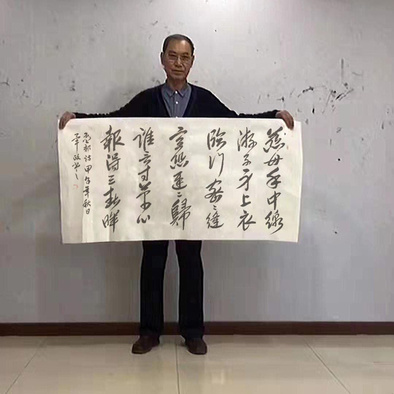 慈母手中線
游子身上衣
臨行密〻縫
意恐遲〻歸
誰言寸草心
報得三春暉
孟郊詩 甲午年秋日